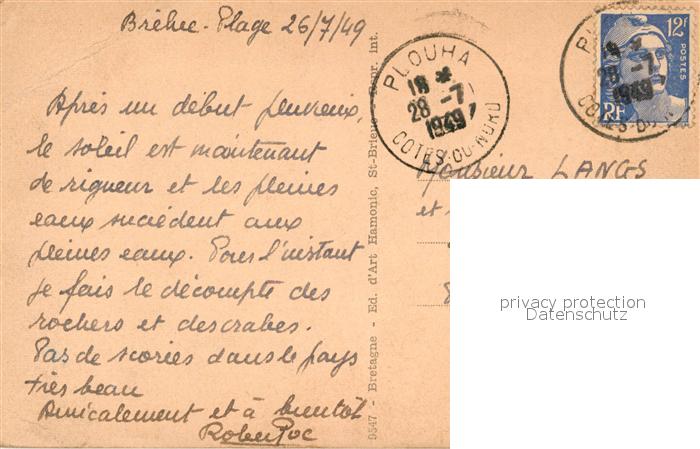 Bréhec-Plage 26/7/49
Après un début pluvieux,
le soleil est maintenant
de rigueur et les pleines
eaux succèdent aux
pleines eaux. Pour l'instant
je fais le décompte des
rochers et des crabes.
Pas de scories dans le pays
très beau
Amicalement et à bientôt
9547 - Bretagne - Ed. d'Art Hamonic, St-Brieuc - int.
PLOUHA
18 *
28 -7
1949
COTES-DU-NORD
12f
POSTES
RF
Monsieur LANGS
et
privacy protection
Datenschutz